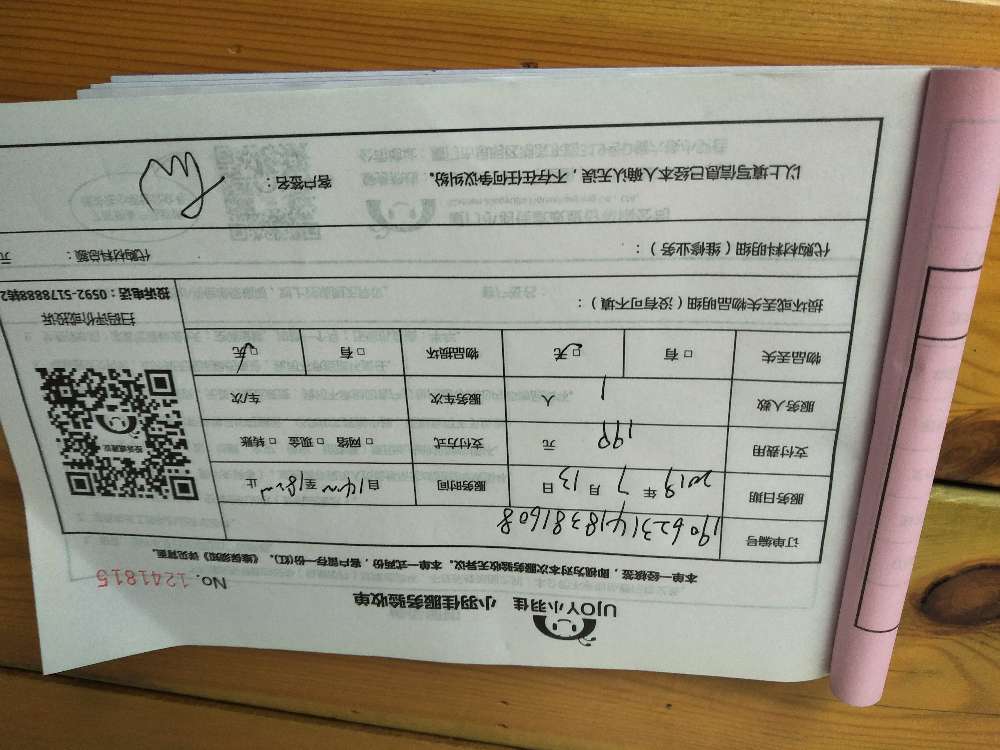 UJOY小羽佳 小羽佳服务验收单
No. 1241815
本单一经核签，即视为对本次服务验收无异议。本单一式两份，客户留存一份(红)。《维保须知》详见背面。
订单编号 190623141838 1608
服务日期 2019 年 7 月 13 日 服务时间 自 14:00 至 18:00 止
支付费用 199 元 支付方式 □ 网络 □ 现金 □ 转账
服务人数 1 人 服务车次 车/次
物品丢失 □ 有 □ 无 物品损坏 □ 有 □ 无
扫码评价或投诉
投诉电话：0592-5178888转2
损坏或丢失物品明细（没有可不填）：
代购材料明细（维修业务）： 代购材料总额： 元
以上填写信息已经本人确认无误，不存在任何争议纠纷。 客户签名：